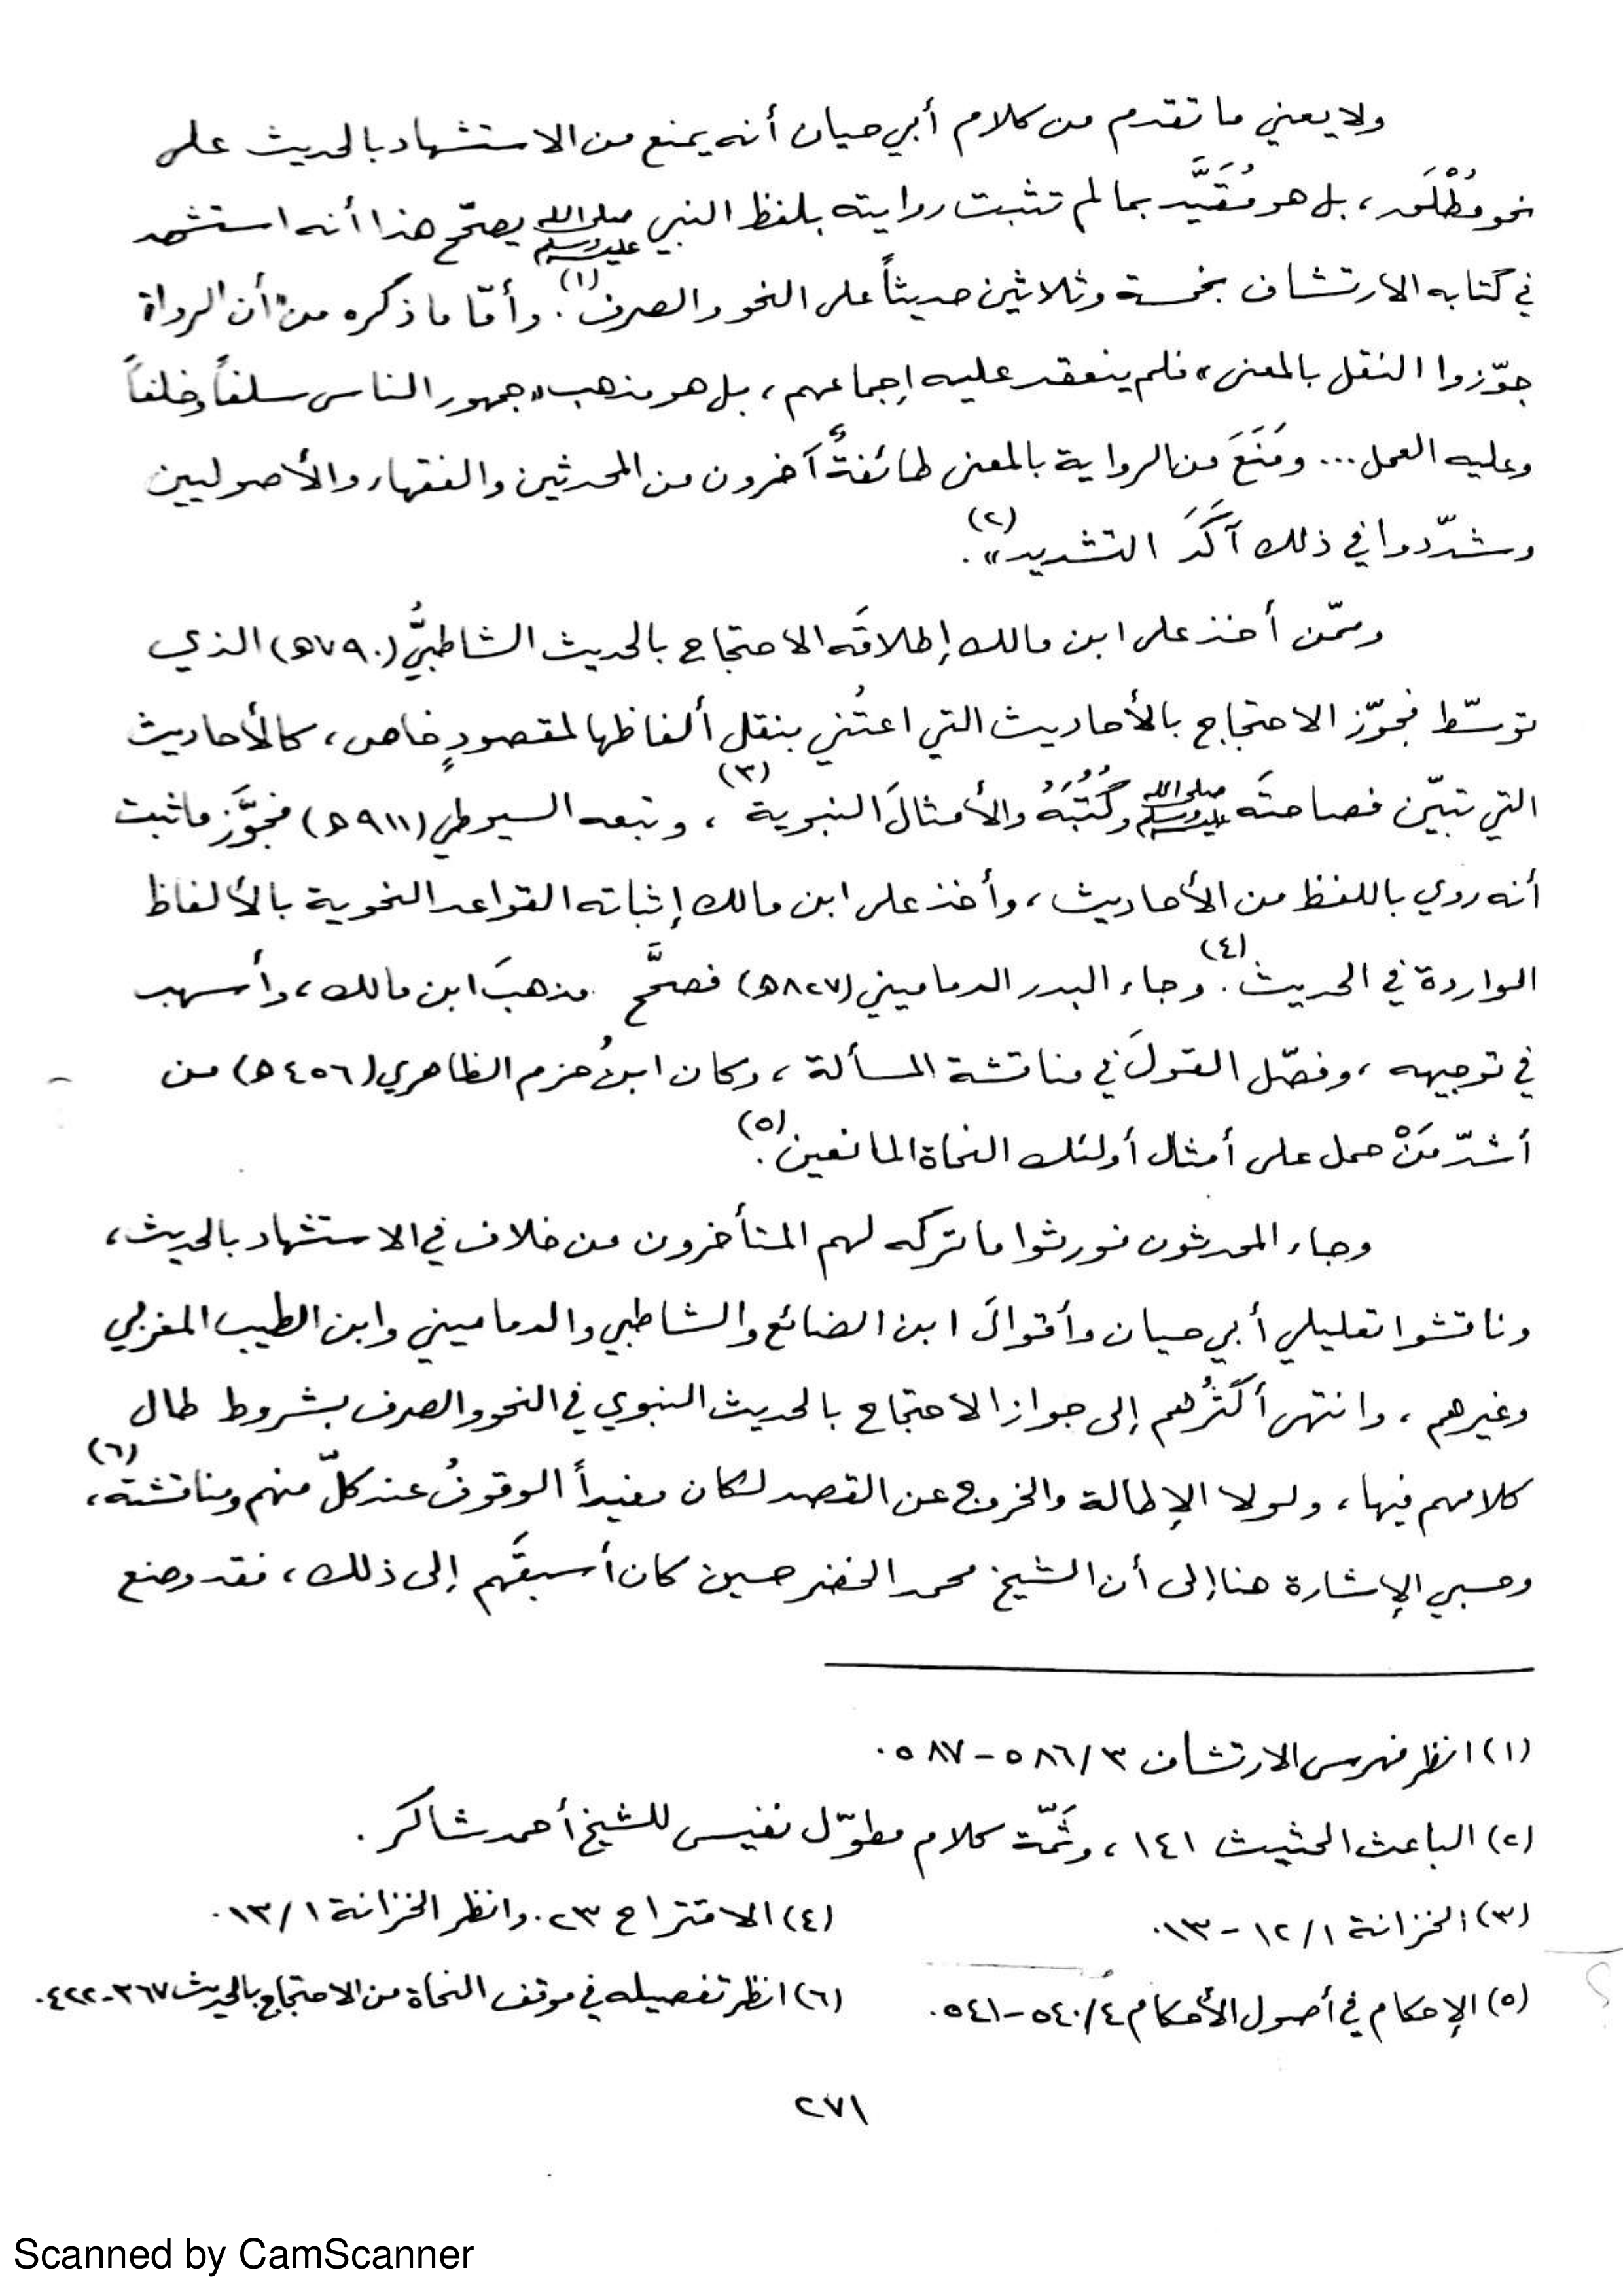 ولا يعني ما تقدم من كلام أبي حيان أنه يمنع من الاستشهاد بالحديث على
نحو مُطْلَق، بل هو مُقَيَّد بما لم تثبت روايته بلفظ النبي ﷺ يصحّح هذا أنه استشهد
في كتابه الارتشاف بخمسة وثلاثين حديثاً على النحو والصرف(١). وأمّا ما ذكره من «أن الرواة
جوّزوا النقل بالمعنى» فلم ينعقد عليه إجماعهم، بل هو مذهب «جمهور الناس سلفاً وخلفاً
وعليه العمل... ومَنَعَ من الرواية بالمعنى طائفةٌ آخرون من المحدثين والفقهاء والأصوليين
وشدّدوا في ذلك آكَدَ التشديد»(٢).
وممّن أخذ على ابن مالك إطلاقَه الاحتجاج بالحديث الشاطبيُّ (٧٩٠ه) الذي
توسّط فجوّز الاحتجاج بالأحاديث التي اعتُني بنقل ألفاظها لمقصودٍ خاص، كالأحاديث
التي تبيّن فصاحتَه ﷺ وكُتُبَهُ والأمثالَ النبوية(٣)، وتبعه السيوطي (٩١١ه) فجوَّز ما ثبت
أنه روي باللفظ من الأحاديث، وأخذ على ابن مالك إثباته القواعد النحوية بالألفاظ
الواردة في الحديث(٤). وجاء البدر الدماميني (٨٢٧ه) فصحَّح مذهبَ ابن مالك، وأسهب
في توجيهه، وفصّل القولَ في مناقشة المسألة، وكان ابنُ حزم الظاهري (٤٥٦ه) من
أشدّ مَنْ حمل على أمثال أولئك النحاة المانعين(٥).
وجاء المحدثون فورثوا ما تركه لهم المتأخرون من خلاف في الاستشهاد بالحديث،
وناقشوا تعليلي أبي حيان وأقوالَ ابن الضائع والشاطبي والدماميني وابن الطيب المغربي
وغيرهم، وانتهى أكثرُهم إلى جواز الاحتجاج بالحديث النبوي في النحو والصرف بشروط طال
كلامهم فيها، ولولا الإطالة والخروج عن القصد لكان مفيداً الوقوفُ عند كلّ منهم ومناقشته(٦)،
وحسبي الإشارة هنا إلى أن الشيخ محمد الخضر حسين كان أسبقَهم إلى ذلك، فقد وضع
(١) انظر فهرس الارتشاف ٣/٥٨٦-٥٨٧.
(٢) الباعث الحثيث ١٤١، وثَمّة كلام مطوّل نفيس للشيخ أحمد شاكر.
(٣) الخزانة ١/١٢-١٣. (٤) الاقتراح ٢٣. وانظر الخزانة ١/١٣.
(٥) الإحكام في أصول الأحكام ٤/٥٤٠-٥٤١. (٦) انظر تفصيله في موقف النحاة من الاحتجاج بالحديث ٣٦٧-٤٢٢.
٢٧١
Scanned by CamScanner